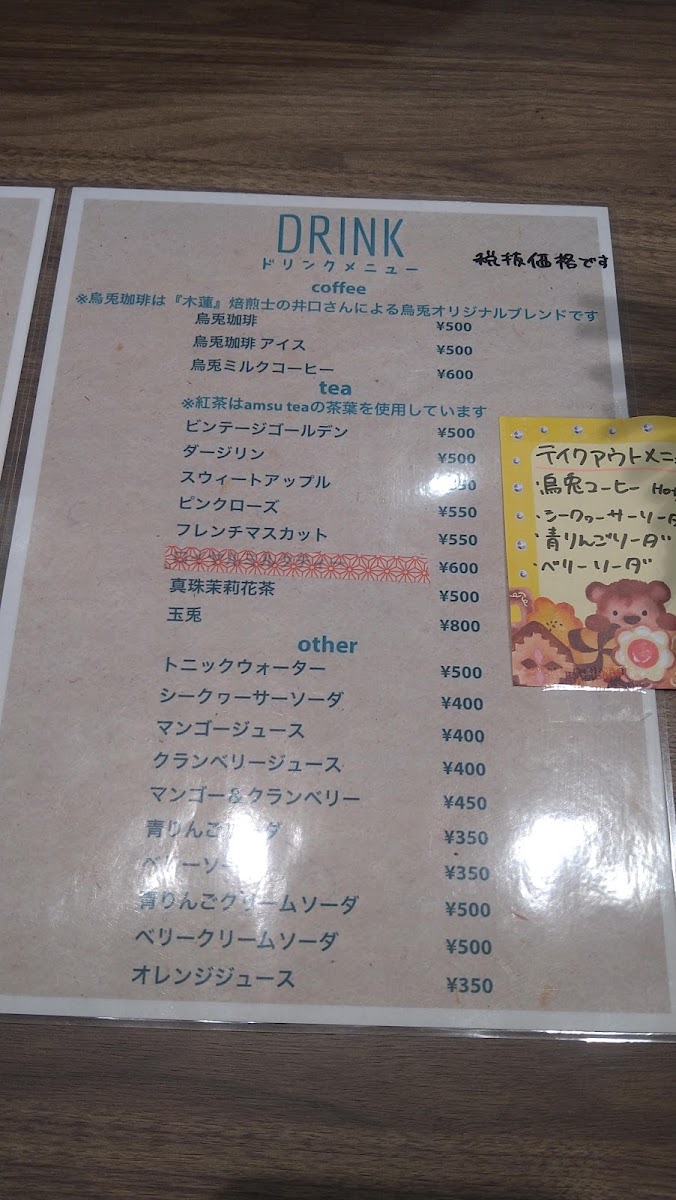 DRINK
ドリンクメニュー
税抜価格です
coffee
※烏兎珈琲は『木蓮』焙煎士の井口さんによる烏兎オリジナルブレンドです
烏兎珈琲 ¥500
烏兎珈琲 アイス ¥500
烏兎ミルクコーヒー ¥600
tea
※紅茶はamsu teaの茶葉を使用しています
ビンテージゴールデン ¥500
ダージリン ¥500
スウィートアップル
ピンクローズ ¥550
フレンチマスカット ¥550
¥600
真珠茉莉花茶 ¥500
玉兎 ¥800
other
トニックウォーター ¥500
シークヮーサーソーダ ¥400
マンゴージュース ¥400
クランベリージュース ¥400
マンゴー&クランベリー ¥450
青りんごソーダ ¥350
ベリーソーダ ¥350
青りんごクリームソーダ ¥500
ベリークリームソーダ ¥500
オレンジジュース ¥350
テイクアウトメニ
・烏兎コーヒー Hot
・シークヮーサーソーダ
・青りんごソーダ
・ベリーソーダ